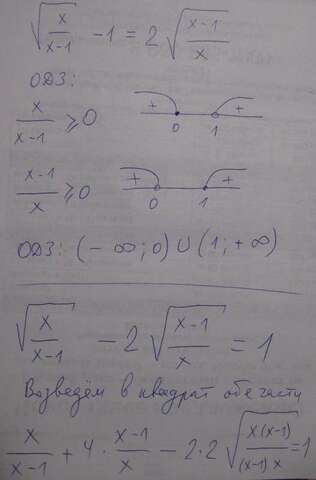 √(x/(x-1)) - 1 = 2√((x-1)/x)
ОДЗ:
x/(x-1) ⩾ 0 + 0 1 +
(x-1)/x ⩾ 0 + 0 1 +
ОДЗ: (- ∞; 0) ∪ (1; + ∞)
√(x/(x-1)) - 2√((x-1)/x) = 1
Возведём в квадрат обе части
x/(x-1) + 4 · (x-1)/x - 2·2√(x(x-1)/((x-1)x)) = 1